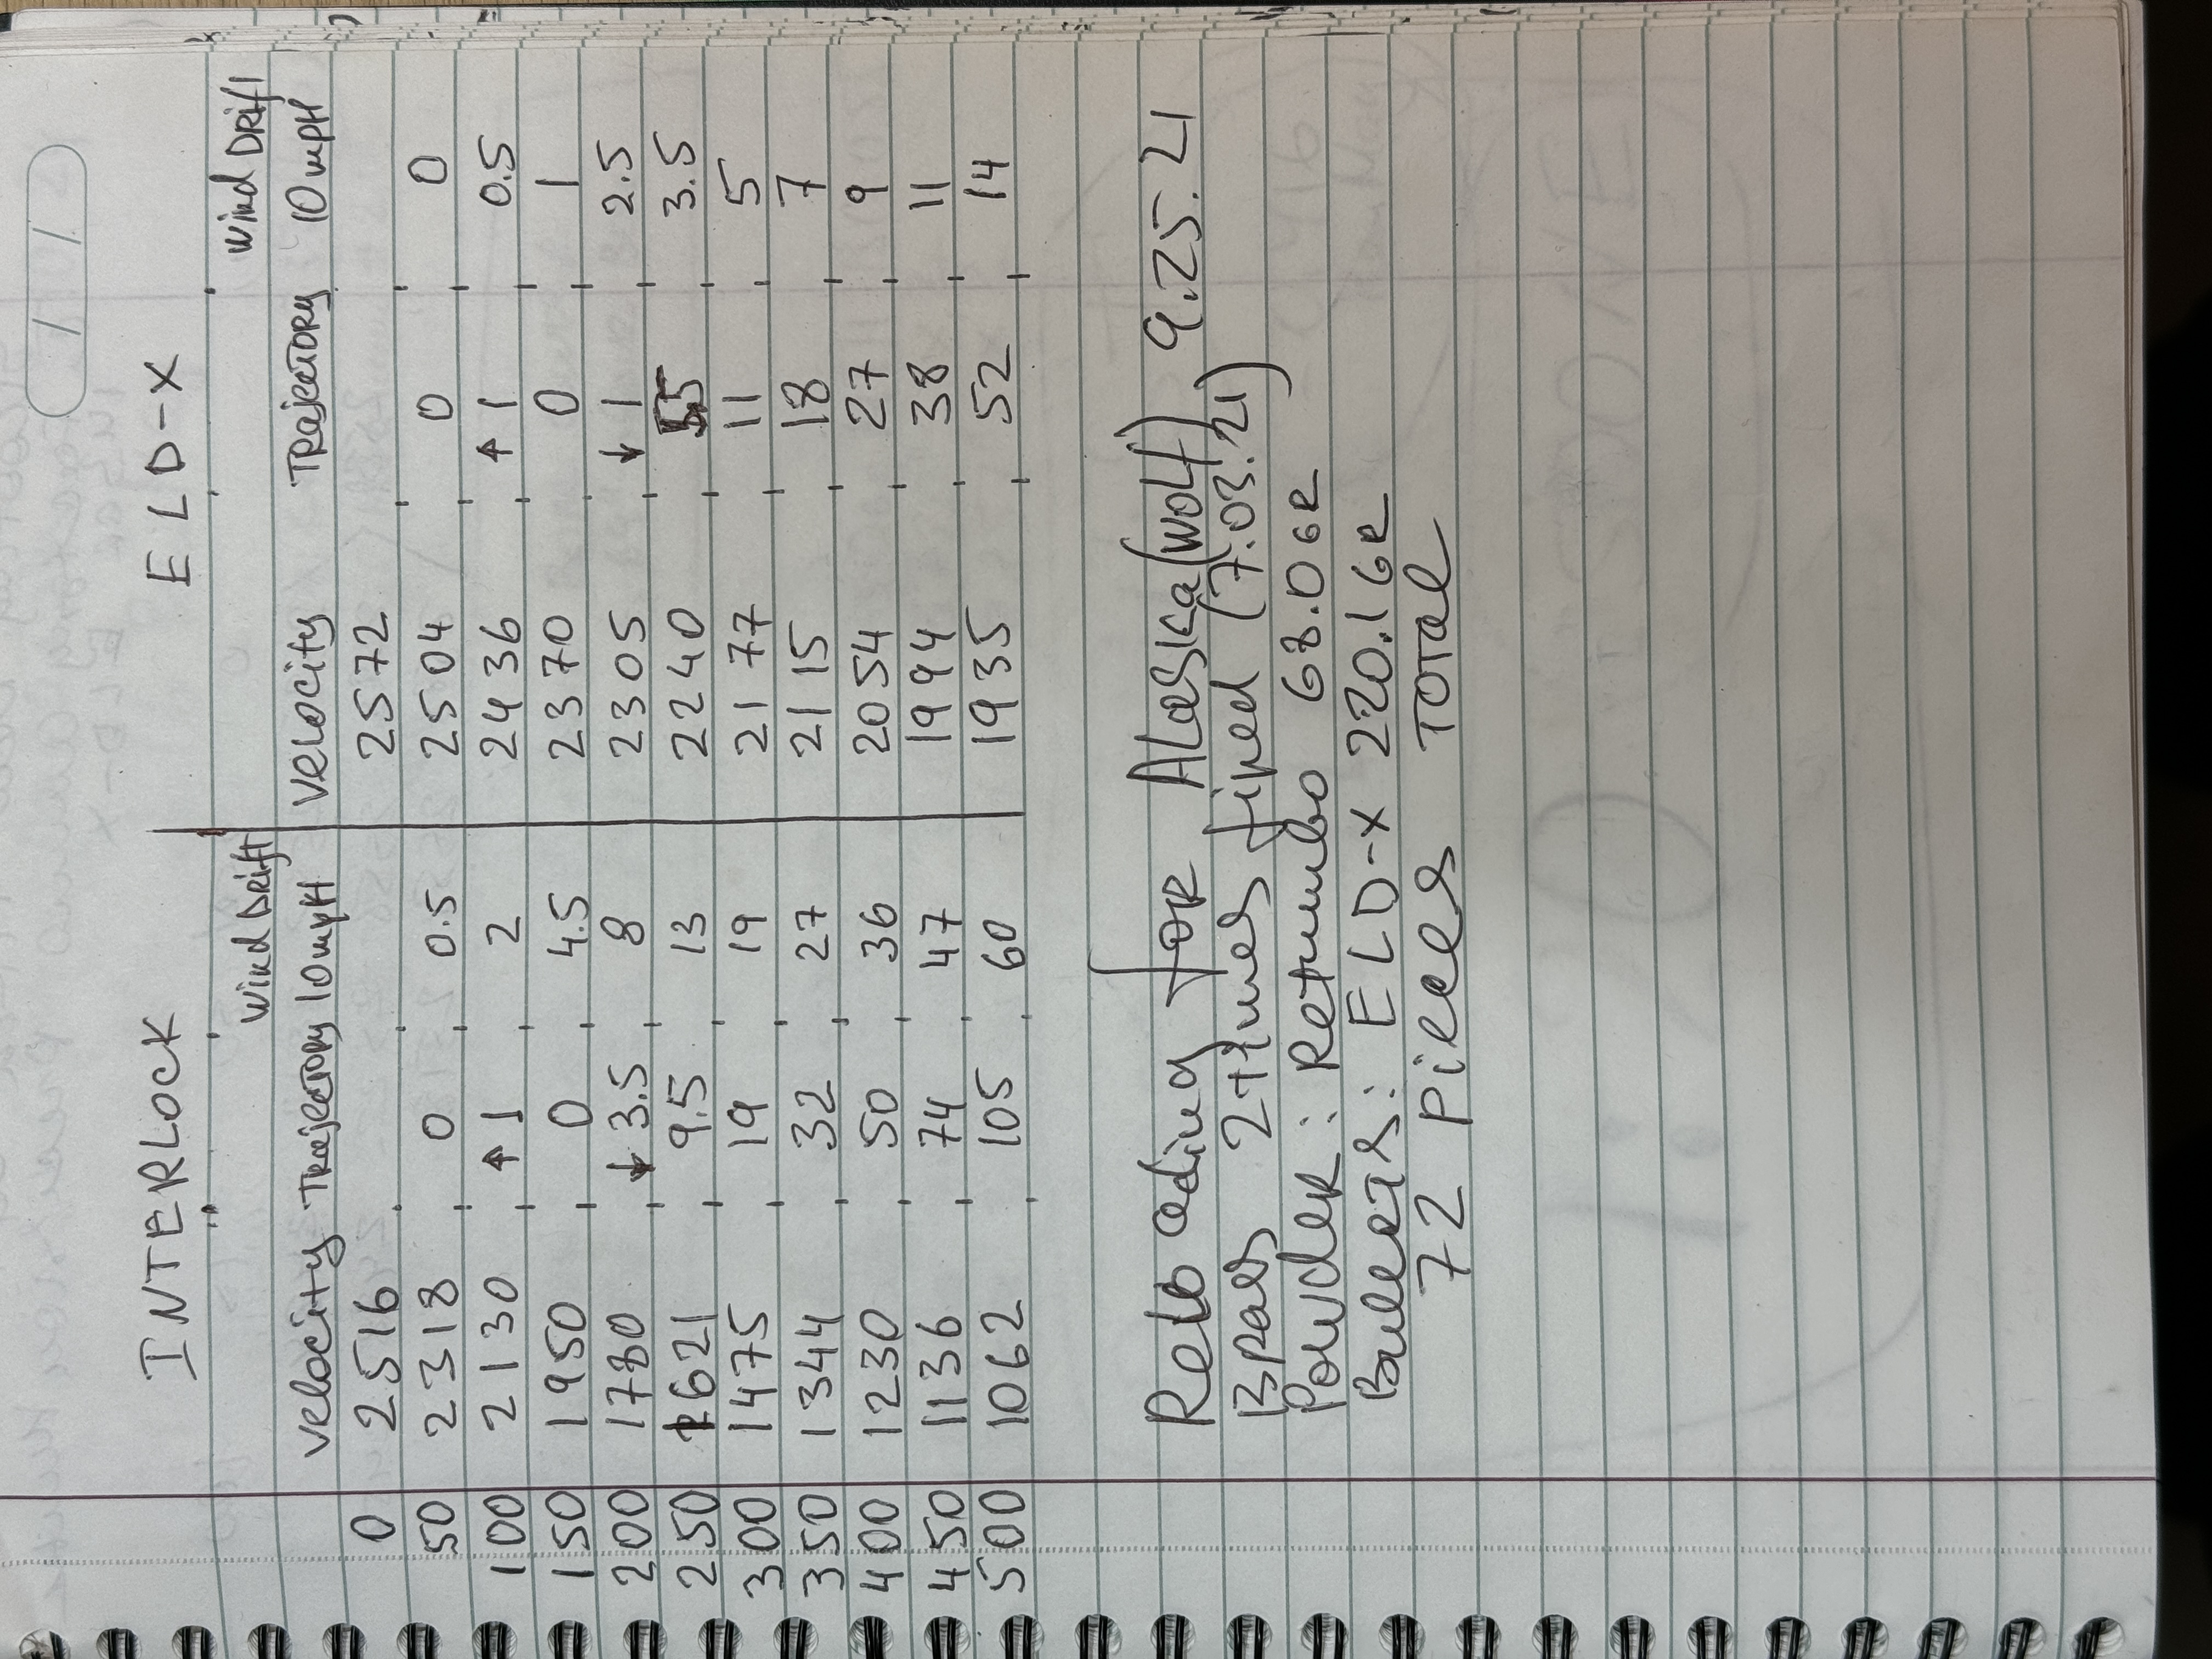 INTERLOCK ELD-X
Wind Drift Wind Drift
Velocity Trajectory 10mpH Velocity Trajectory 10mpH
0 2516 2572
50 2318 0 0.5 2504 0 0
100 2130 ↑ 1 2 2436 ↑ 1 0.5
150 1950 0 4.5 2370 0 1
200 1780 ↓ 3.5 8 2305 ↓ 1 2.5
250 1621 9.5 13 2240 3.5
300 1475 19 19 2177 11 5
350 1344 32 27 2115 18 7
400 1230 50 36 2054 27 9
450 1136 74 47 1994 38 11
500 1062 105 60 1935 52 14
Reloading for Alaska(wolf) 9.25.21
Brass 2 times fired (7.03.21)
Powder: Retumbo 68.0 GR
Bullets: ELD-X 220.1 GR
72 pieces Total